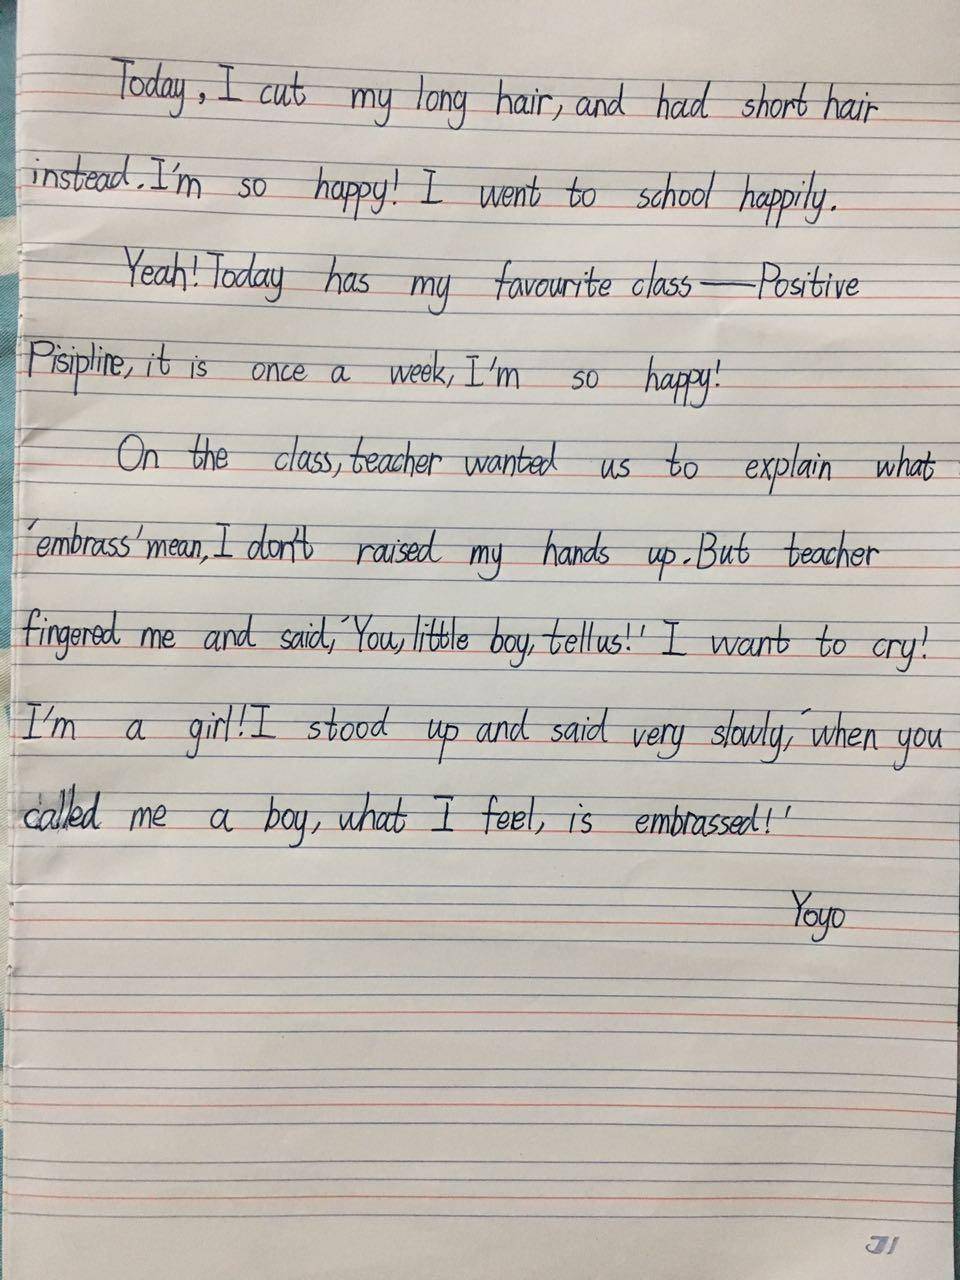 Today, I cut my long hair, and had short hair
instead. I'm so happy! I went to school happily.
Yeah! Today has my favourite class——Positive
Pisipline, it is once a week, I'm so happy!
On the class, teacher wanted us to explain what
'embrass' mean, I don't raised my hands up. But teacher
fingered me and said, 'You, little boy, tell us!' I want to cry!
I'm a girl! I stood up and said very slowly, 'when you
called me a boy, what I feel, is embrassed!'
Yoyo